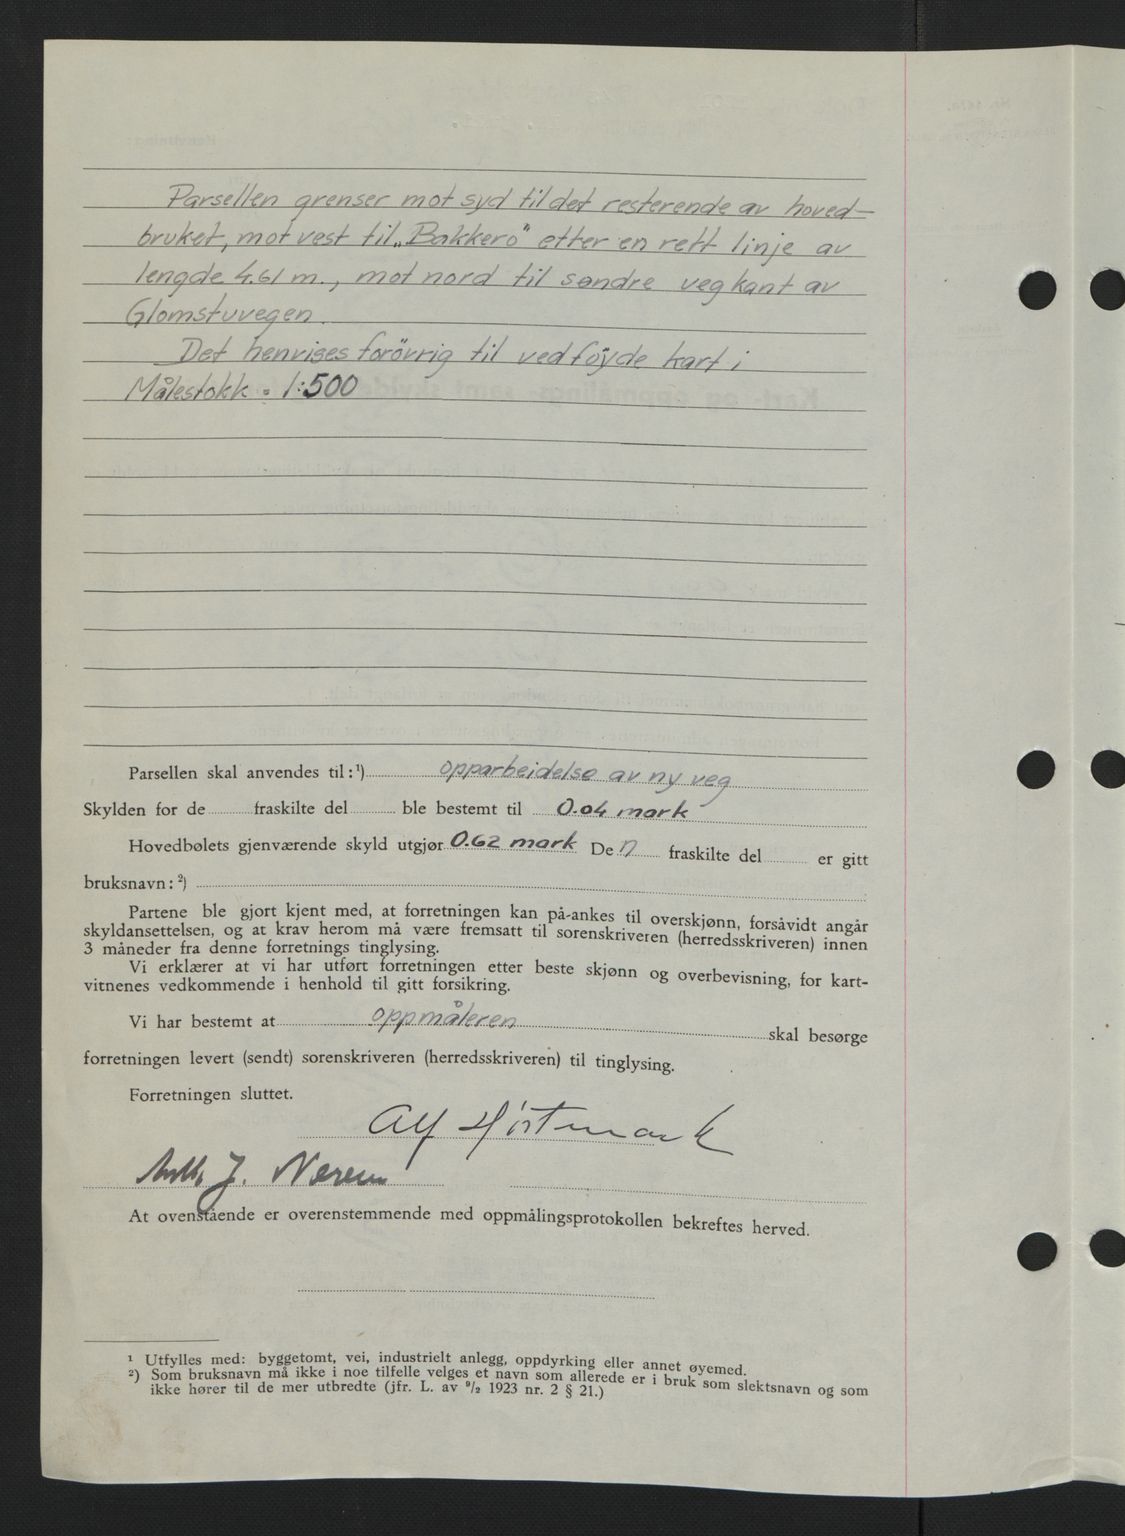 Parsellen grenser mot syd til det resterende av hoved-
bruket, mot vest til „Bakkero" etter en rett linje av
lengde 4.61 m., mot nord til søndre vegkant av
Glomstuvegen.
Det henvises forövrig til vedföyde kart i
Målestokk : 1:500
Parsellen skal anvendes til:¹) opparbeidelse av ny veg
Skylden for de fraskilte del ble bestemt til 0.04 mark
Hovedbølets gjenværende skyld utgjør 0.62 mark Den fraskilte del er gitt
bruksnavn: ²)
Partene ble gjort kjent med, at forretningen kan på-ankes til overskjønn, forsåvidt angår
skyldansettelsen, og at krav herom må være fremsatt til sorenskriveren (herredsskriveren) innen
3 måneder fra denne forretnings tinglysing.
Vi erklærer at vi har utført forretningen etter beste skjønn og overbevisning, for kart-
vitnenes vedkommende i henhold til gitt forsikring.
Vi har bestemt at oppmåleren skal besørge
forretningen levert (sendt) sorenskriveren (herredsskriveren) til tinglysing.
Forretningen sluttet.
Alf Hjortmark
J. Neren
At ovenstående er overenstemmende med oppmålingsprotokollen bekreftes herved.
¹ Utfylles med: byggetomt, vei, industrielt anlegg, oppdyrking eller annet øyemed.
²) Som bruksnavn må ikke i noe tilfelle velges et navn som allerede er i bruk som slektsnavn og som
ikke hører til de mer utbredte (jfr. L. av ⁹/₂ 1923 nr. 2 § 21.)